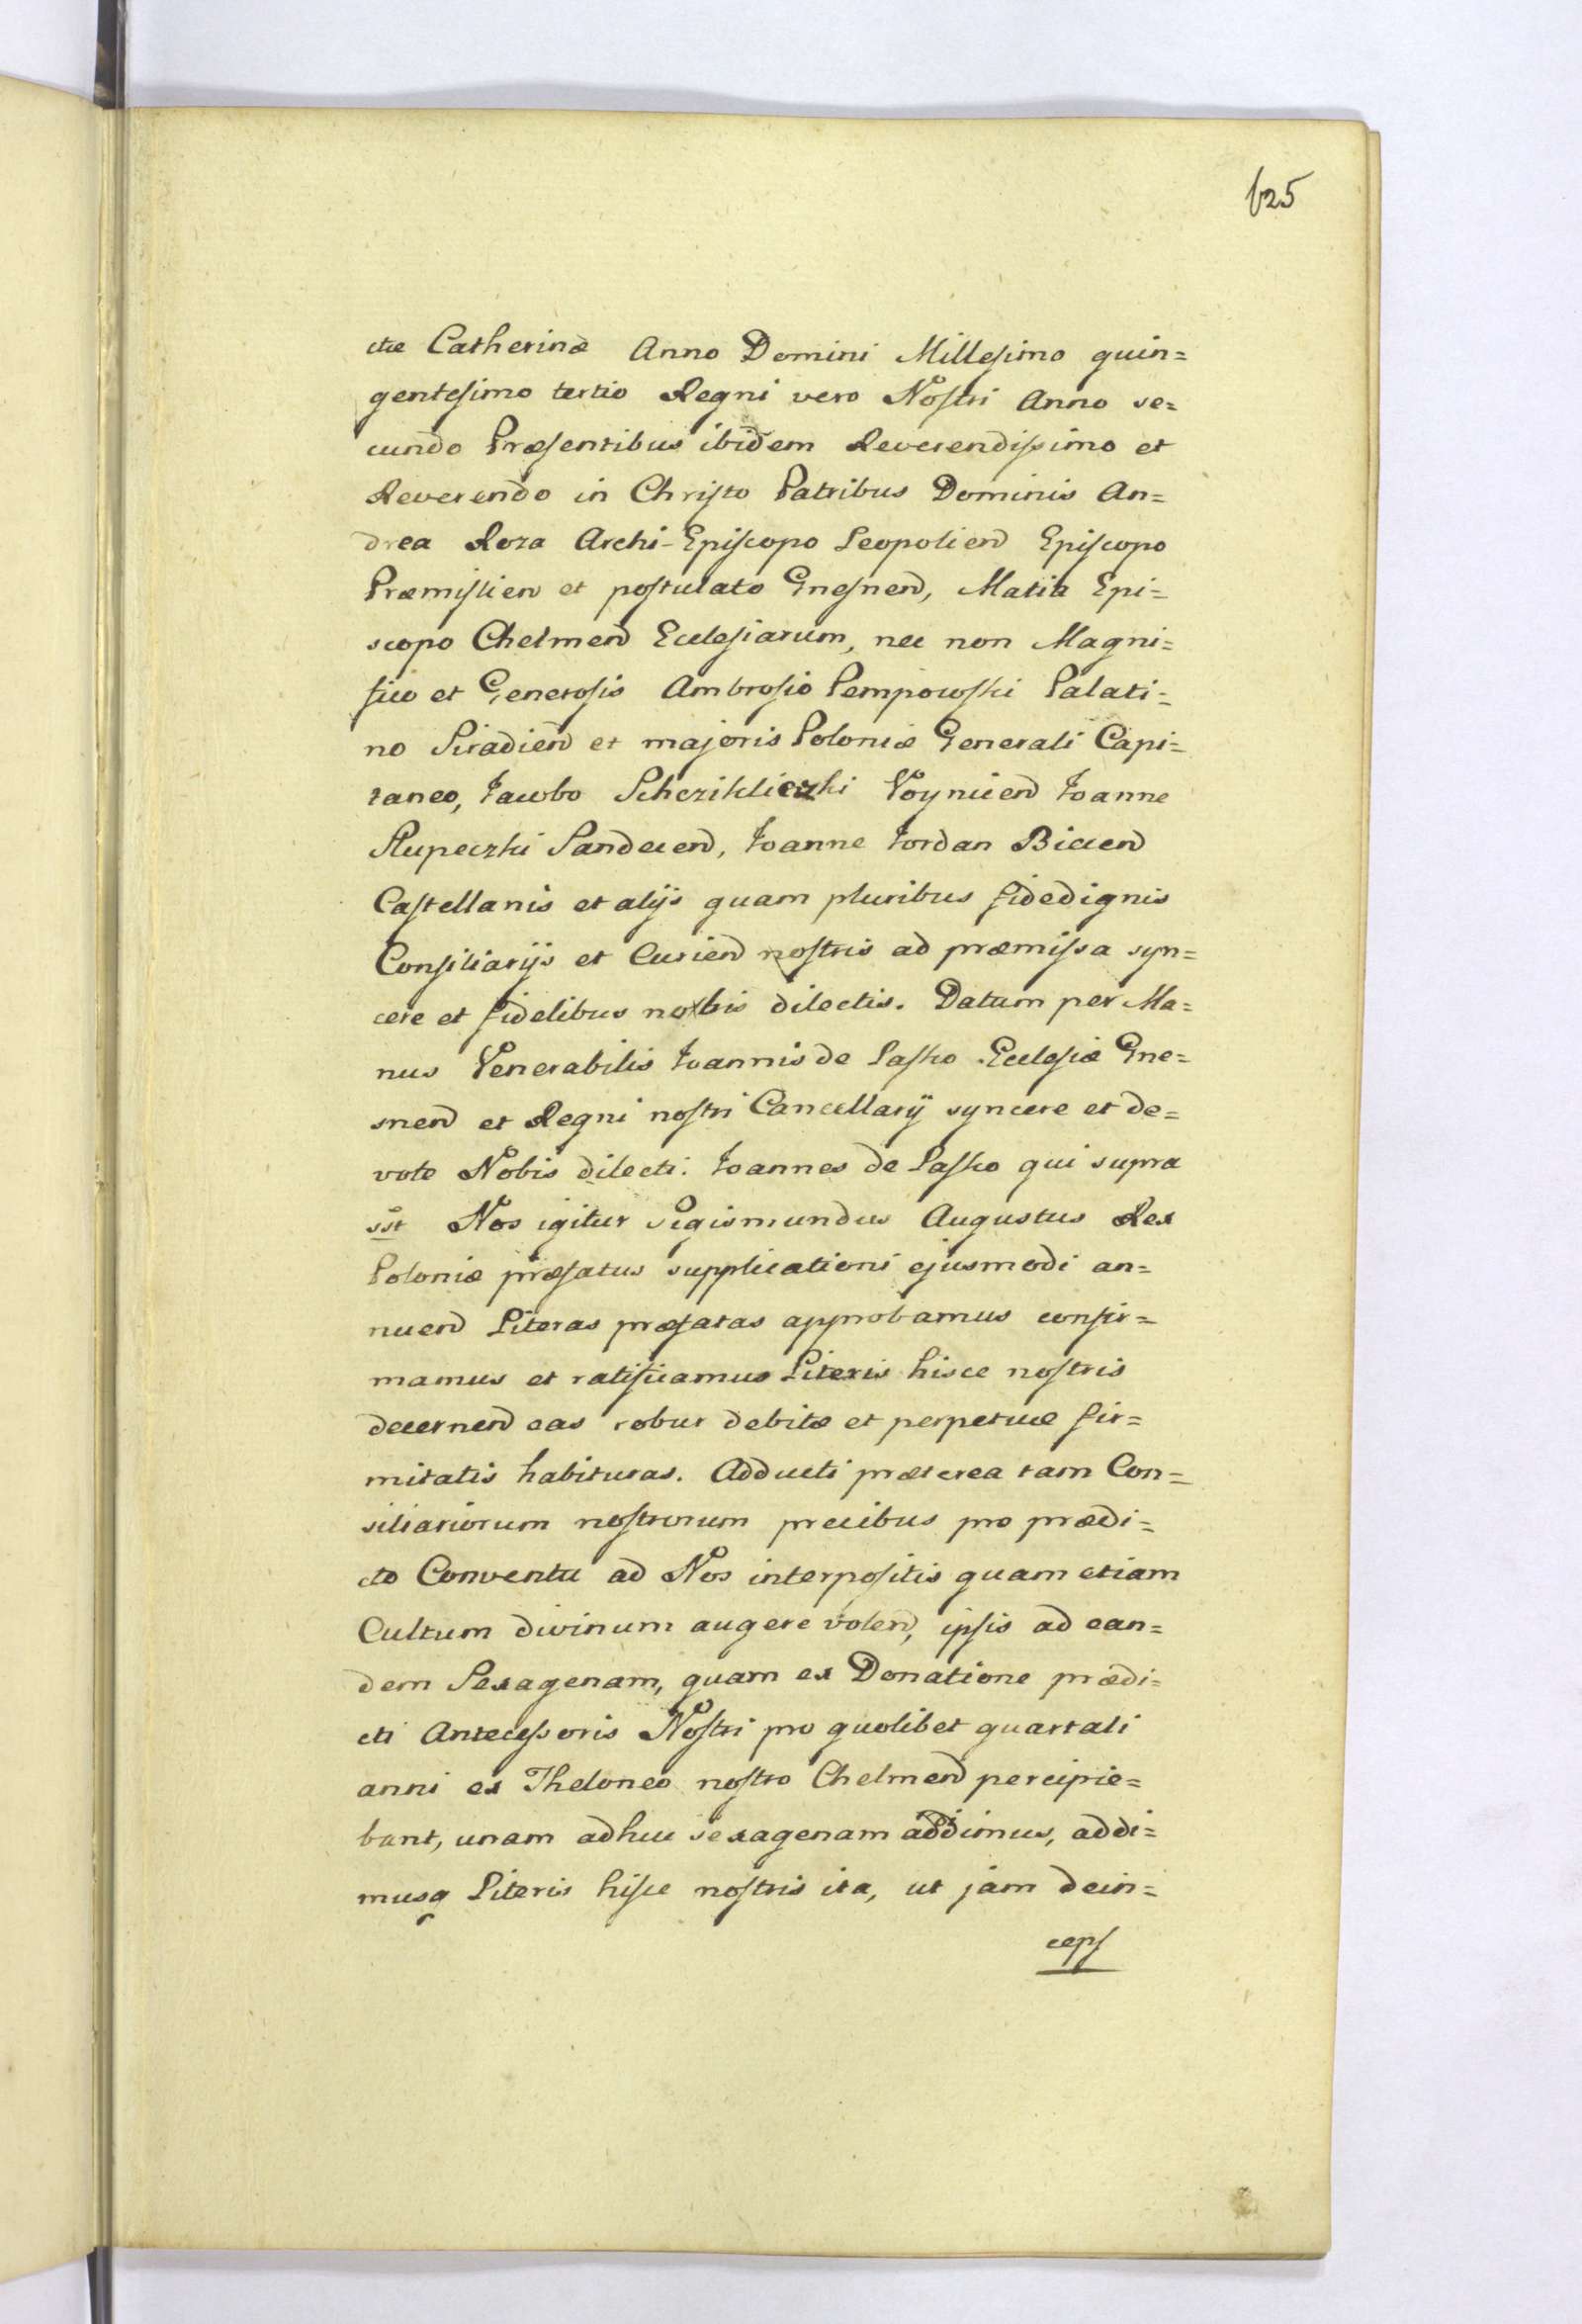 625
ctæ Catherinæ Anno Domini Millesimo quin=
gentesimo tertio Regni vero Nostri Anno se=
cundo Præsentibus ibidem Reverendissimo et
Reverendo in Christo Patribus Dominis An=
drea Roza Archi-Episcopo Leopolien Episcopo
Præmislien et postulato Gnesnen, Matia Epi=
scopo Chelmen Ecclesiarum, nec non Magni=
fico et Generosis Ambrosio Pempowski Palati=
no Siradien et majoris Poloniæ Generali Capi=
taneo, Jacobo Scheziklieczki Voynicien Joanne
Slupeczki Sandecen, Joanne Jordan Biecen
Castellanis et alijs quam pluribus fidedignis
Consiliarijs et Curien nostris ad præmissa syn=
cere et fidelibus nobis dilectis. Datum per Ma=
nus Venerabilis Joannis de Lasko Ecclesiæ Gne=
snen et Regni nostri Cancellarij syncere et de=
vote Nobis dilecti. Joannes de Lasko qui supra
sst Nos igitur Sigismundus Augustus Rex
Poloniæ præfatus supplicationi ejusmodi an=
nuen Literas præfatas approbamus confir=
mamus et ratificamus Literis hisce nostris
decernen eas robur debitæ et perpetuæ fir=
mitatis habituras. Adducti præterea tam Con=
siliariorum nostrorum precibus pro prædi=
cto Conventu ad Nos interpositis quam etiam
Cultum divinum augere volen, ipsis ad ean=
dem Sexagenam, quam ex Donatione prædi=
cti Antecessoris Nostri pro quolibet quartali
anni ex Theloneo nostro Chelmen percipie=
bant, unam adhuc sexagenam addimus, addi=
musq Literis hisce nostris ita, ut jam dein=
ceps